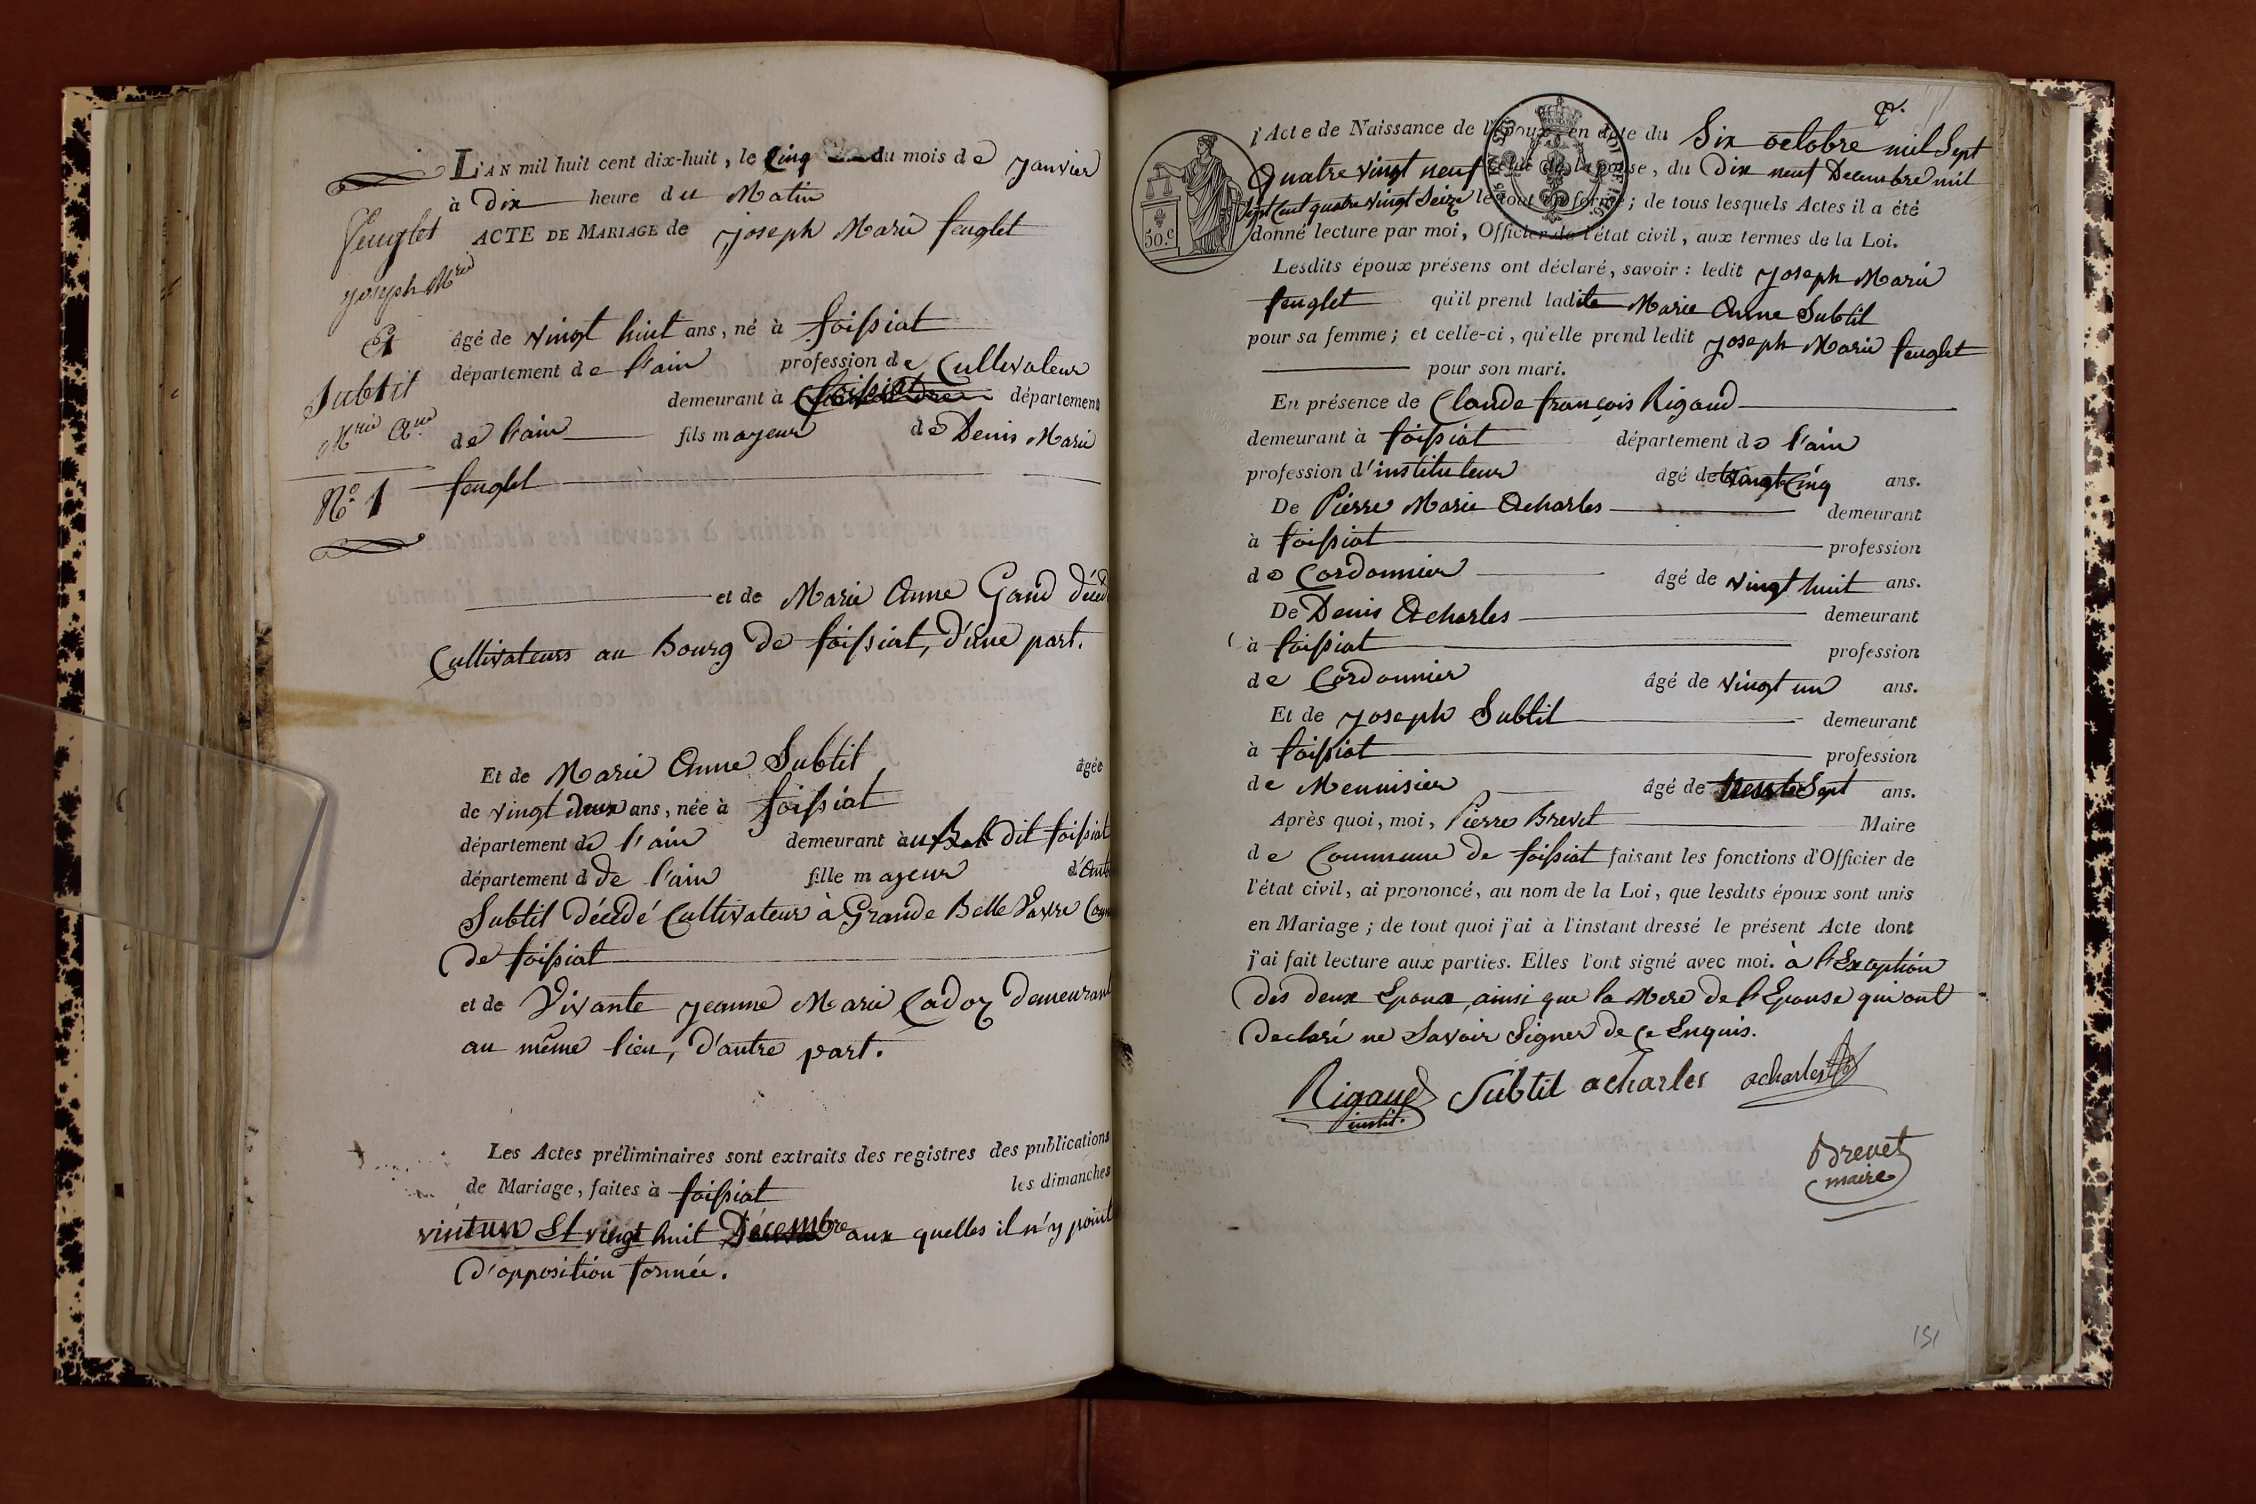 L'AN mil huit cent dix-huit, le Cinq du mois de Janvier
à Dix heure du Matin
ACTE DE MARIAGE de Joseph Marie feuglet
feuglet
Joseph Mrie
Et
Subtil
Mrie Ane
N.o 1
âgé de vingt huit ans, né à foissiat
département de l'ain profession de Cultivateur
demeurant à foissiat département
de l'ain fils mayeur de Denis Marie
feuglet
et de Marie Anne Gand décéd
Cultivateurs au Bourg de foissiat, d'une part.
Et de Marie Anne Subtil âgée
de vingt deux ans, née à foissiat
département de l'ain demeurant au dit foissiat
département d de l'ain fille mayeur d'Anto
Subtil décédé Cultivateur à Grande Belle Vavre Com
de foissiat
et de Vivante Jeanne Marie Cadoz demeurant
au même lieu, d'autre part.
Les Actes préliminaires sont extraits des registres des publications
de Mariage, faites à foissiat les dimanches
vintun Et vingt huit Décembre aux quelles il n'y point
d'opposition formée.
l'Acte de Naissance de l'époux, en date du Six octobre mil Sept
Quatre vingt neuf celui de l'épouse, du Dix neuf Decembre mil
Sept Cent quatre vingt Seize le tout en forme; de tous lesquels Actes il a été
donné lecture par moi, Officier de l'état civil, aux termes de la Loi.
50.c
Lesdits époux présens ont déclaré, savoir: ledit Joseph Marie
feuglet qu'il prend ladite Marie Anne Subtil
pour sa femme; et celle-ci, qu'elle prend ledit Joseph Marie feuglet
pour son mari.
En présence de Claude françois Rigaud
demeurant à foissiat département de l'ain
profession d'instituteur âgé de Cinq ans.
De Pierre Marie Acharles demeurant
à foissiat profession
de Cordonnier âgé de vingt huit ans.
De Denis Acharles demeurant
à foissiat profession
de Cordonnier âgé de vingt un ans.
Et de Joseph Subtil demeurant
à foissiat profession
de Mennisier âgé de trente Sept ans.
Après quoi, moi, Pierre Brevet Maire
de Commune de foissiat faisant les fonctions d'Officier de
l'état civil, ai prononcé, au nom de la Loi, que lesdits époux sont unis
en Mariage; de tout quoi j'ai à l'instant dressé le présent Acte dont
j'ai fait lecture aux parties. Elles l'ont signé avec moi. à l'Exception
des deux Epoux, ainsi que la Mere de l'Epouse qui ont
declaré ne Savoir Signer de Ce Enquis.
Rigaud Subtil acharles acharles
instit.
Brevet
maire
151